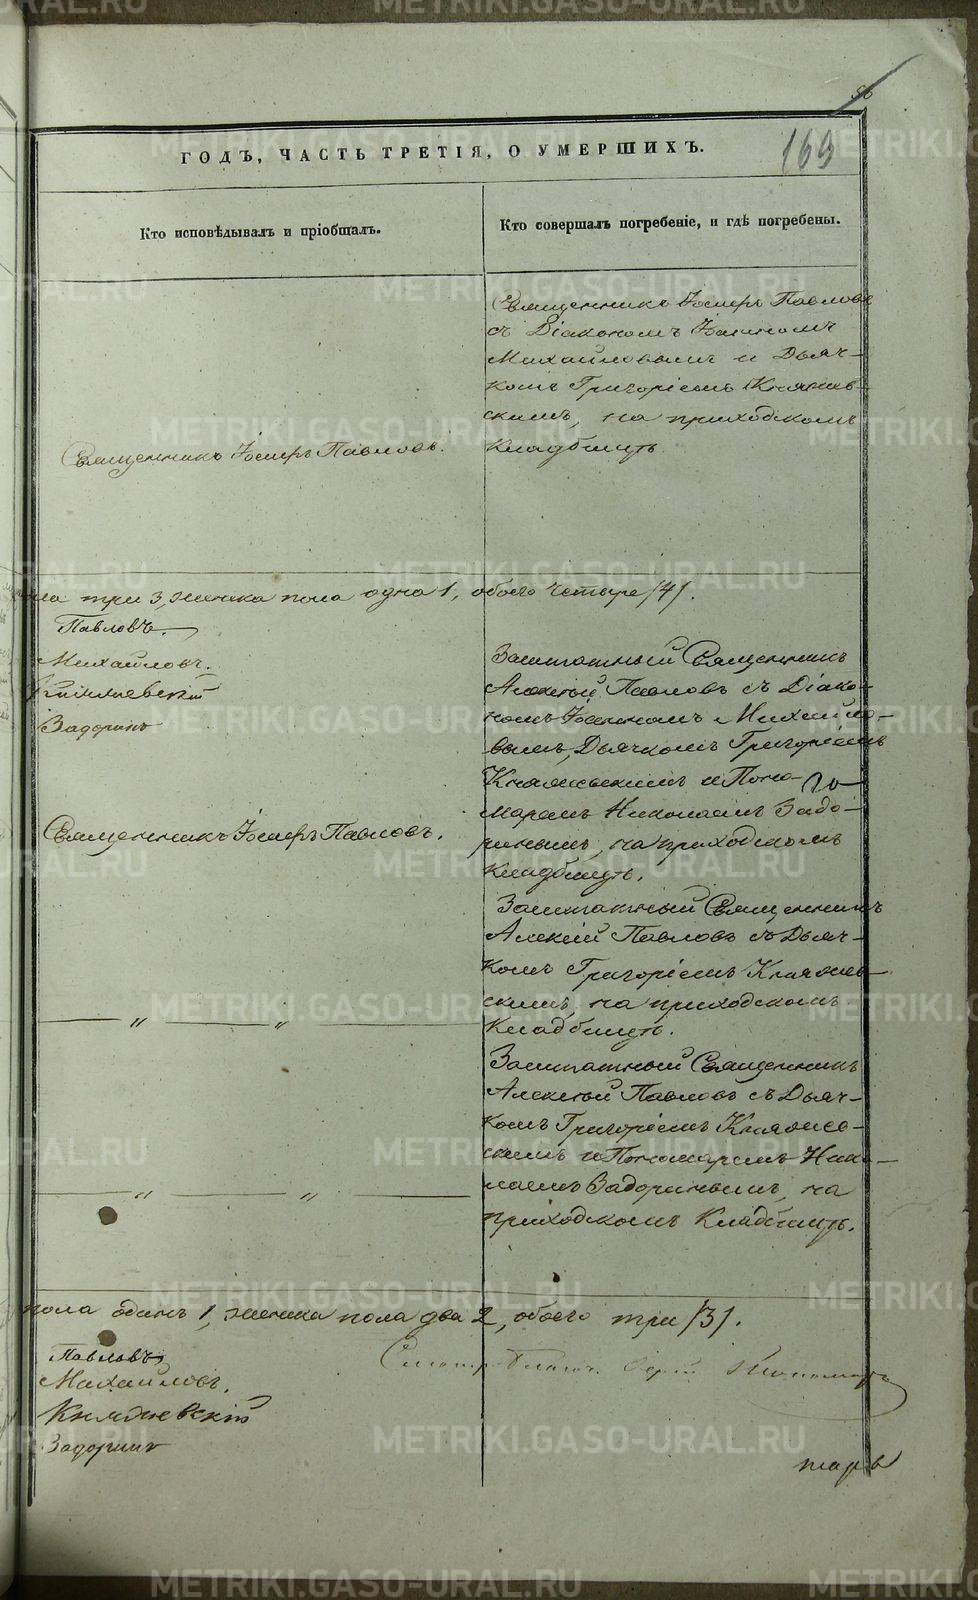 56
169
ГОДЪ, ЧАСТЬ ТРЕТІЯ, О УМЕРШИХЪ.
Кто исповѣдывалъ и пріобщалъ.
Кто совершалъ погребеніе, и гдѣ погребены.
Священникъ Павловъ
съ Діакономъ Іоанномъ
Михайловымъ и Дьяч-
комъ Григоріемъ Княжев-
скимъ, на приходскомъ
кладбищѣ.
Священникъ Павловъ.
три 3, женска пола одна 1, обоего четыре /4/.
Павловъ.
Михайловъ.
Княжевскій
Задоринъ
Заштатный Священникъ
Алексій Павловъ съ Діако-
номъ Іоанномъ Михайло-
вымъ, Дьячкомъ Григоріемъ
Княжевскимъ и Поно-
маремъ Николаемъ Задо-
ринымъ, на приходскомъ
кладбищѣ.
Священникъ Павловъ.
Заштатный Священникъ
Алексій Павловъ съ Дьяч-
комъ Григоріемъ Княжев-
скимъ, на приходскомъ
кладбищѣ.
— „ — „ —
Заштатный Священникъ
Алексій Павловъ съ Дьяч-
комъ Григоріемъ Княжев-
скимъ и Пономаремъ Нико-
лаемъ Задоринымъ, на
приходскомъ кладбищѣ.
— „ — „ —
пола одинъ 1, женска пола два 2, обоего три /3/.
Павловъ
Михайловъ.
Княжевскій
Задоринъ